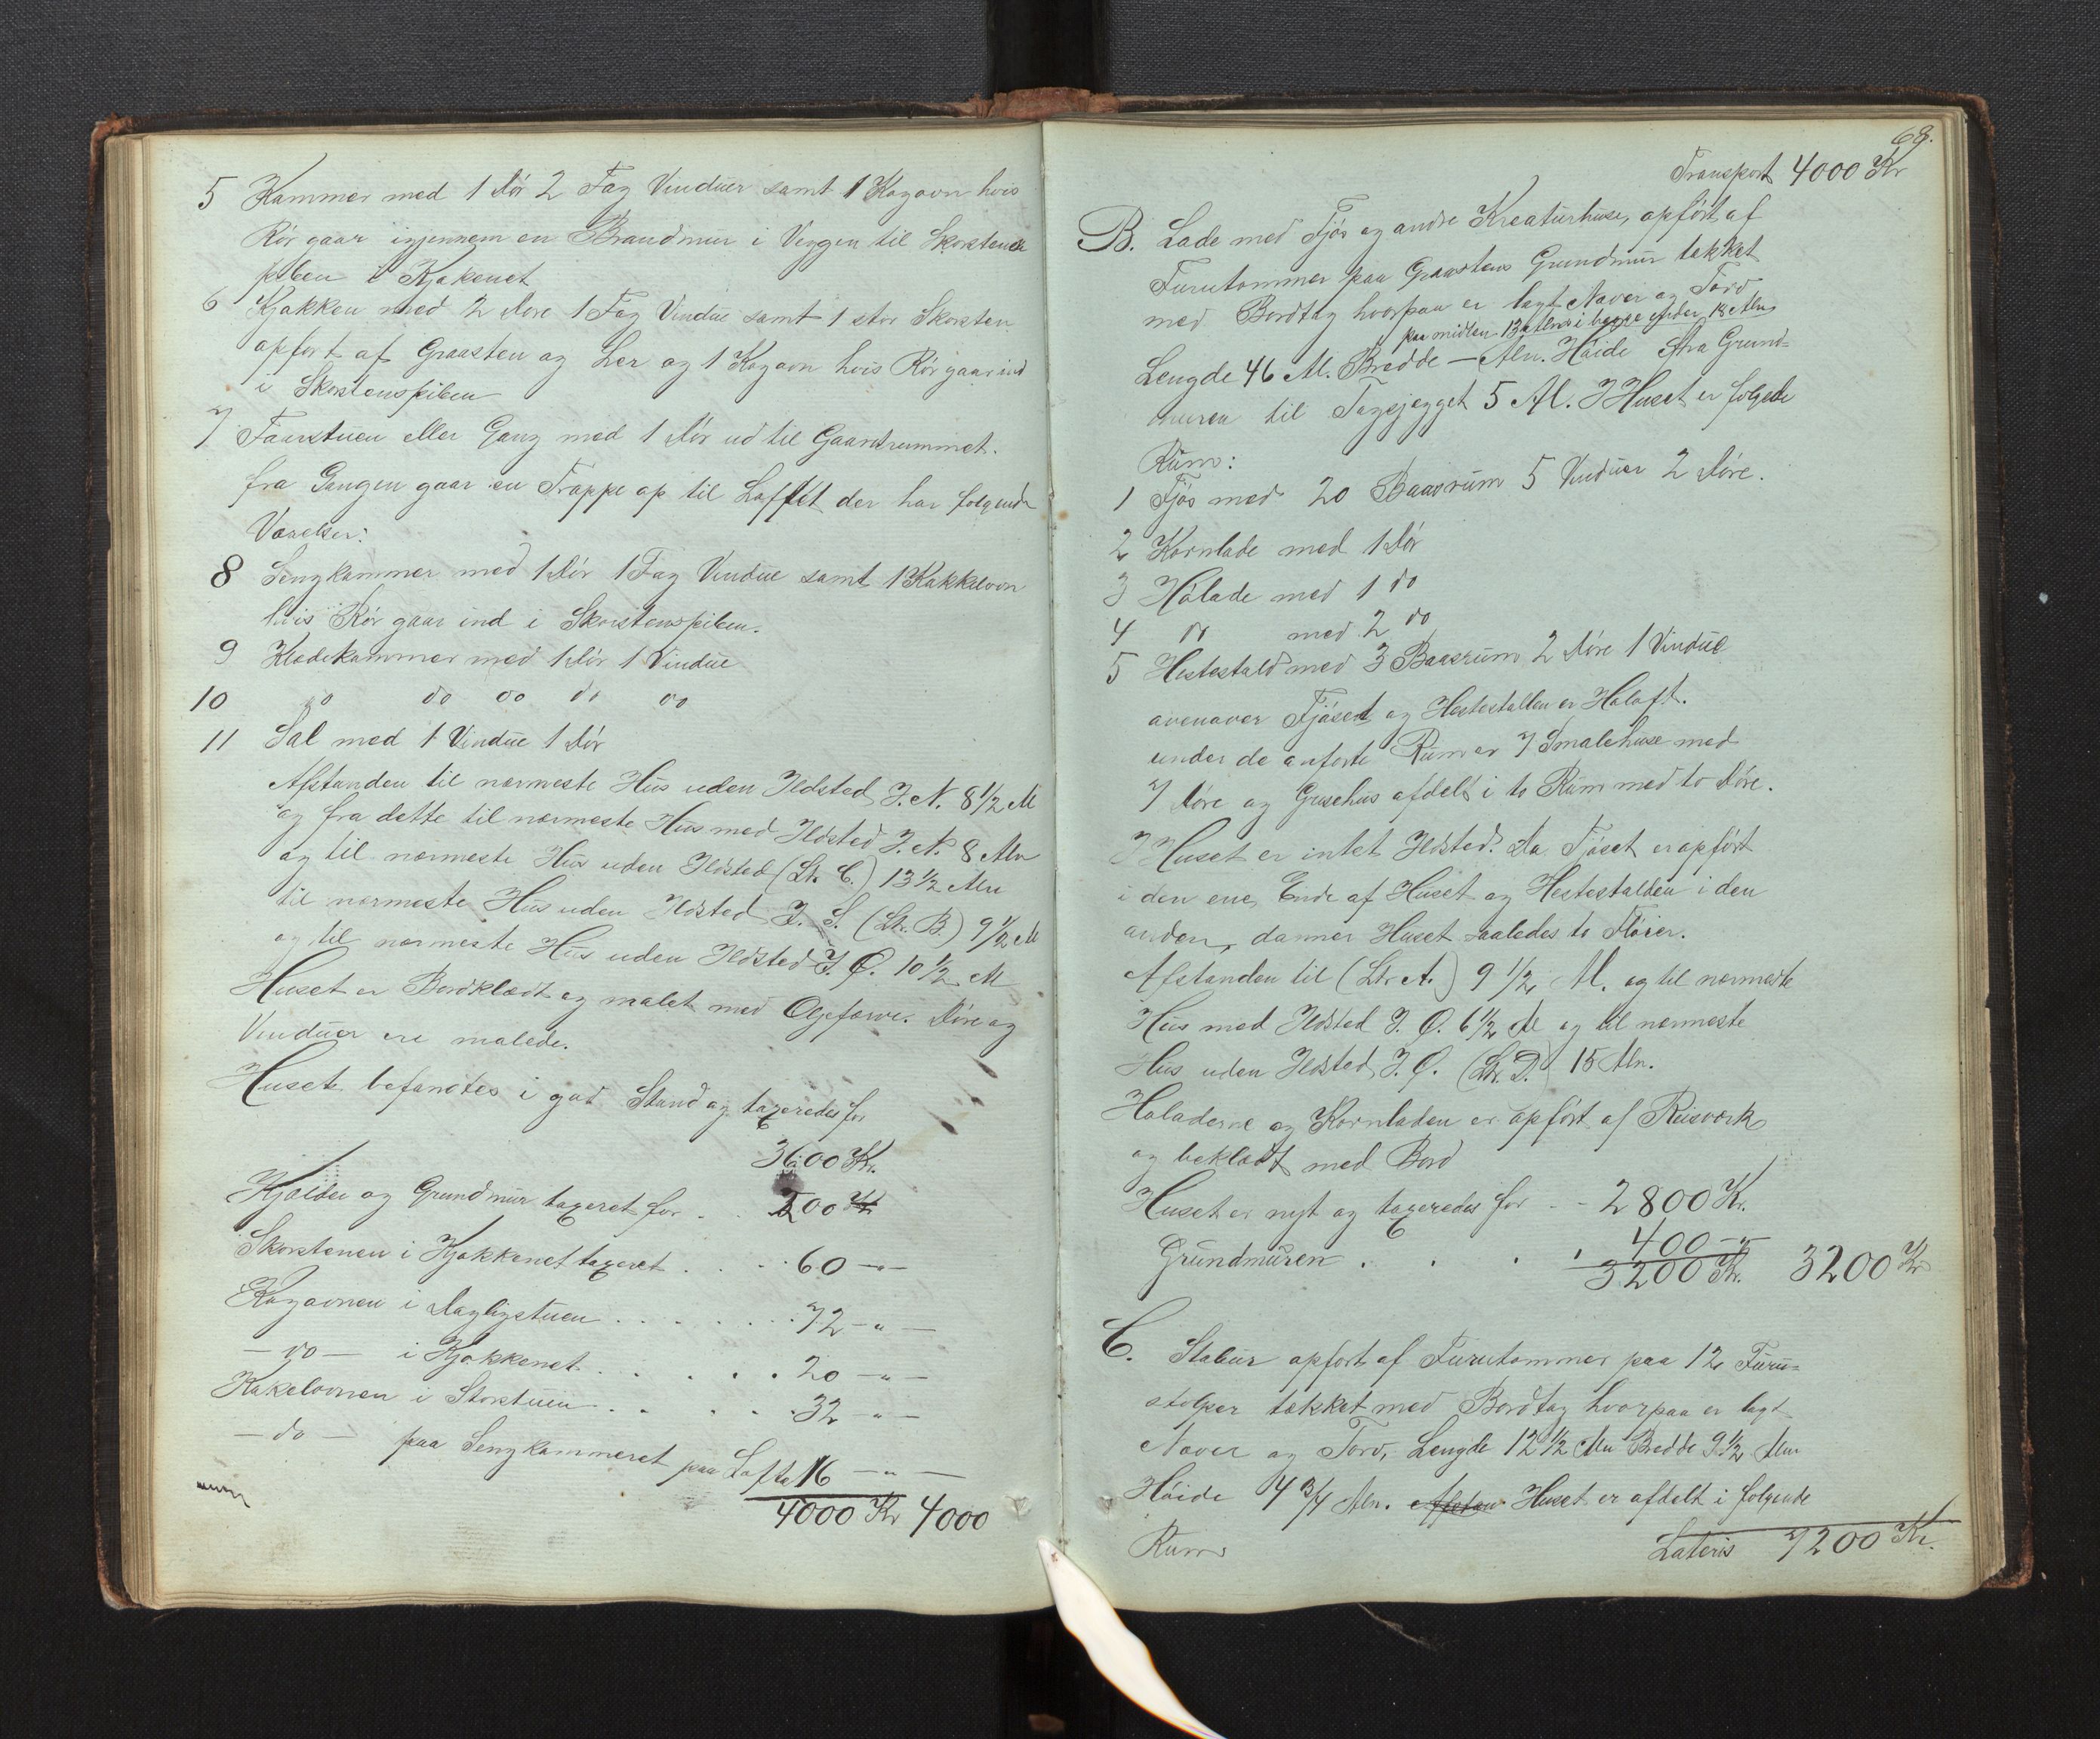 5 Kammer med 1 Dör 2 Fag Vinduer samt 1 Kogovn hvis
Rör gaar igjennem en Brandmur i Veggen til Skorstens
piben i Kjøkenet
6 Kjøkken med 2 Døre 1 Fag Vindue samt 1 stor Skorsten
opført af Graasten og Ler og 1 Kogovn hvis Rör gaar ind
i Skorstenspiben
7 Faarstuen eller Gang med 1 Dör ud til Gaardsrummet.
fra Gangen gaar en Trappe op til Loftet der har følgende
Værelser:
8 Sengkammer med 1 Dör 1 Fag Vindue samt 1 Kakkelovn
hvis Rör gaar ind i Skorstenspiben.
9 Klædekammer med 1 Dör 1 Vindue
10 do do do do do
11 Sal med 1 Vindue 1 Dör
Afstanden til nærmeste Hus uden Ildsted I. N. 8 1/2 Al
og fra dette til nærmeste Hus med Ildsted I. N. 8 Aln
og til nærmeste Hus uden Ildsted (Ltr. C.) 13 1/2 Aln
til nærmeste Hus uden Ildsted I. S. (Ltr. B.) 9 1/2 Al
og til nærmeste Hus uden Ildsted I. Ø. 10 1/2 Al
Huset er Bordklædt og malet med Oljefarve. Döre og
Vinduer ere malede.
Huset befandtes i god Stand og taxeredes for
3600 Kr.
Kjælder og Grundmur taxeret for . . 200 Kr
Skorstenen i Kjøkkenet taxeret . . . . 60 -"-
Kogovnen i Dagligstuen . . . . . . . . 72 -"-
- do - i Kjøkkenet . . . . . 20 -"-
Kakelovnen i Storstuen . . . . . 32 "-
- do - paa Sengkammeret paa Lofte 16 -"-
4000 Kr 4000
68.
Transport 4000 Kr
B. Lade med Fjös og andre Kreaturhuse, opfört af
Furutømmer paa Graastens Grundmur tækket
med Bordtag hvorpaa er lagt Næver og Torv
paa midten 13 Alen i begge ender 12 Aln
Længde 46 Al. Bredde — Aln. Höide fra Grund=
muren til Tagskjegget 5 Al. I Huset er følgede
Rum:
1 Fjös med 20 Baasrum 5 Vinduer 2 Döre.
2 Kornlade med 1 Dör
3 Hölade med 1 do
4 do med 2 do
5 Hestestald med 3 Baasrum 2 Döre 1 Vindue
ovenover Fjöset og Hestestallen er Høloft.
under de anførte Rum er 7 Smalehuse med
7 Döre og Grisehus afdelt i to Rum med to Döre.
I Huset er intet Ildsted. Da Fjöset er opfört
i den ene Ende af Huset og Hestestalden i den
anden, danner Huset saaledes to Flöier.
Afstanden til (Ltr A.) 9 1/2 Al. og til nærmeste
Hus med Ildsted I. Ø. 6 1/2 Al og til nærmeste
Hus uden Ildsted I. Ø. (Ltr. D.) 15 Aln.
Høladerne og Kornladen er opfört af Reisværk
og beklædt med Bord
Huset er nyt og taxeredes for - - 2800 Kr.
Grundmuren . . . . 400 -"-
3200 Kr. 3200 Kr
C. Stabur opført af Furutømmer paa 12 Furu=
stolper tækket med Bordtag hvorpaa er lagt
Næver og Torv, Længde 12 1/2 Aln Bredde 9 1/2 Aln
Höide 4 3/4 Aln. Afstan Huset er afdelt i følgende
Rum
Lateris 7200 Kr.